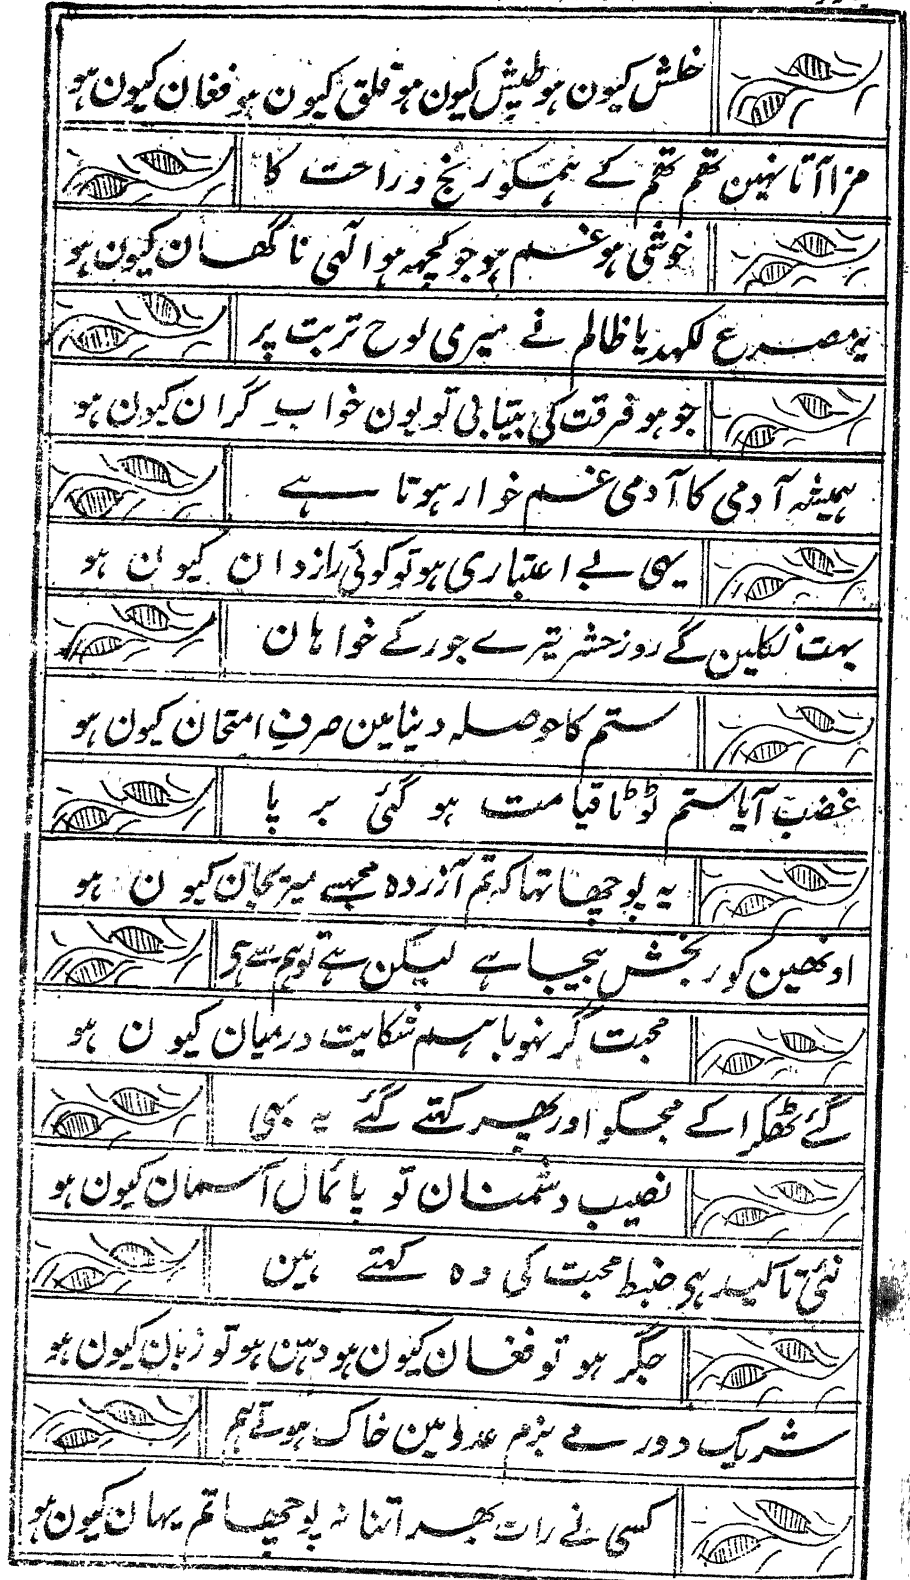 خلش کیون ہو طپش کیون ہو قلق کیون ہو فغان کیون ہو
مزا آتا نہین تھم تھم کے ہمکو رنج و راحت کا
خوشی ہو غم ہو جو کچھہ ہو الٰہی ناگھان کیون ہو
یہ مصرع لکھدیا ظالم نے میری لوح تربت پر
جو ہو فرقت کی بیتابی تو یون خوابِ گران کیون ہو
ہمیشہ آدمی کا آدمی غم خوار ہوتا ہے
یہی بے اعتباری ہو تو کوئی رازدان کیون ہو
بہت نکلین گے روز حشر تیرے جور کے خواہان
ستم کا حوصلہ دینا مین صرفِ امتحان کیون ہو
غضب آیا ستم ٹوٹا قیامت ہو گئی برپا
یہ پوچھا تہا کہ تم آزردہ مجہسے میریجان کیون ہو
اونھین کو رنجش بیجا ہے لیکن ہے تو ہم سے ہے
محبت گر نہو باہم شکایت درمیان کیون ہو
گئے ٹھکرا کے مجکو اور پھر کہتے گئے یہ بہی
نصیب دشمنان تو پائمال آسمان کیون ہو
نئی تاکید ہی ضبط محبت کی وہ کہتے ہین
جگر ہو تو فغان کیون ہو دہن ہو تو زبان کیون ہو
شریک دور مے بزم عدو مین خاک ہوتے ہم
کسی نے رات بھر اتنا نہ پوچھا تم یہان کیون ہو